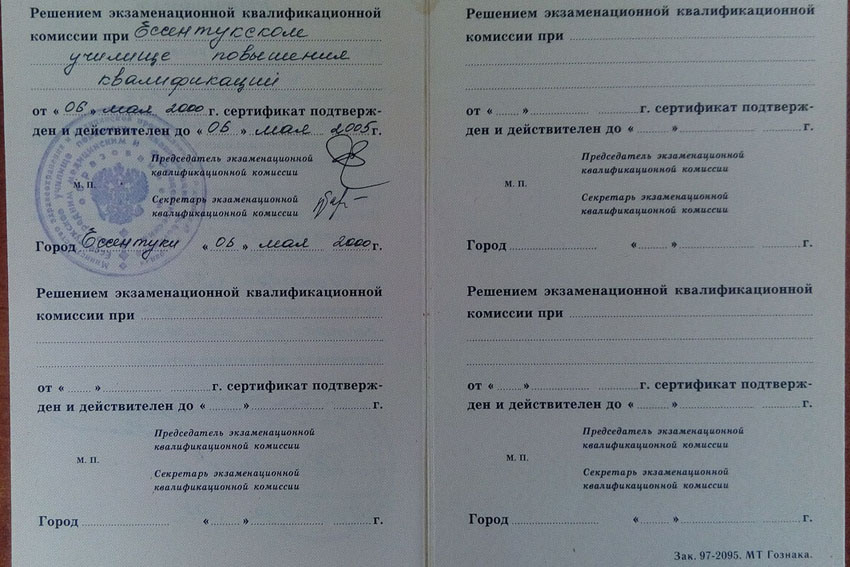 Решением экзаменационной квалификационной
комиссии при Ессентукском
училище повышения
квалификаций
от « 06 » мая 2000 г. сертификат подтверж-
ден и действителен до « 06 » мая 2005 г.
Председатель экзаменационной
квалификационной комиссии
М. П.
Секретарь экзаменационной
квалификационной комиссии
Город Ессентуки « 06 » мая 2000 г.
Решением экзаменационной квалификационной
комиссии при
от « » г. сертификат подтверж-
ден и действителен до « » г.
Председатель экзаменационной
квалификационной комиссии
М. П.
Секретарь экзаменационной
квалификационной комиссии
Город « » г.
Решением экзаменационной квалификационной
комиссии при
от « » г. сертификат подтверж-
ден и действителен до « » г.
Председатель экзаменационной
квалификационной комиссии
М. П.
Секретарь экзаменационной
квалификационной комиссии
Город « » г.
Решением экзаменационной квалификационной
комиссии при
от « » г. сертификат подтверж-
ден и действителен до « » г.
Председатель экзаменационной
квалификационной комиссии
М. П.
Секретарь экзаменационной
квалификационной комиссии
Город « » г.
Зак. 97-2095. МТ Гознака.